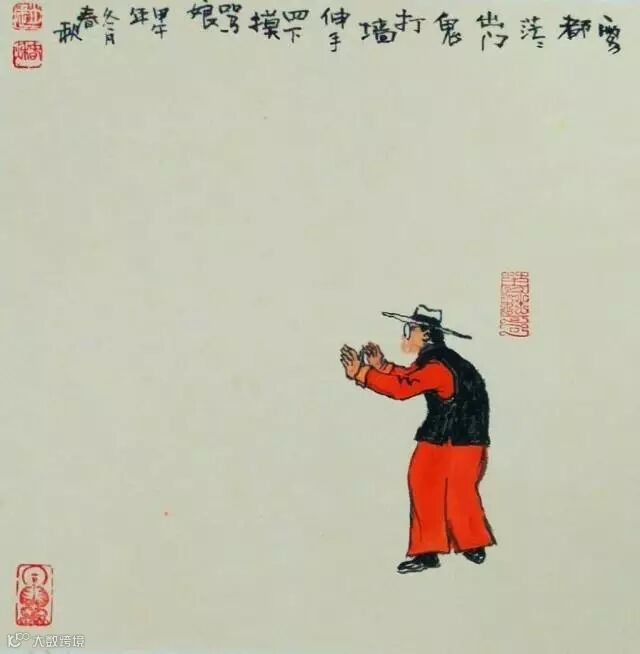 雾都茫茫出门鬼打墙伸手四下摸骂娘甲午年冬月春秋
大数跨境